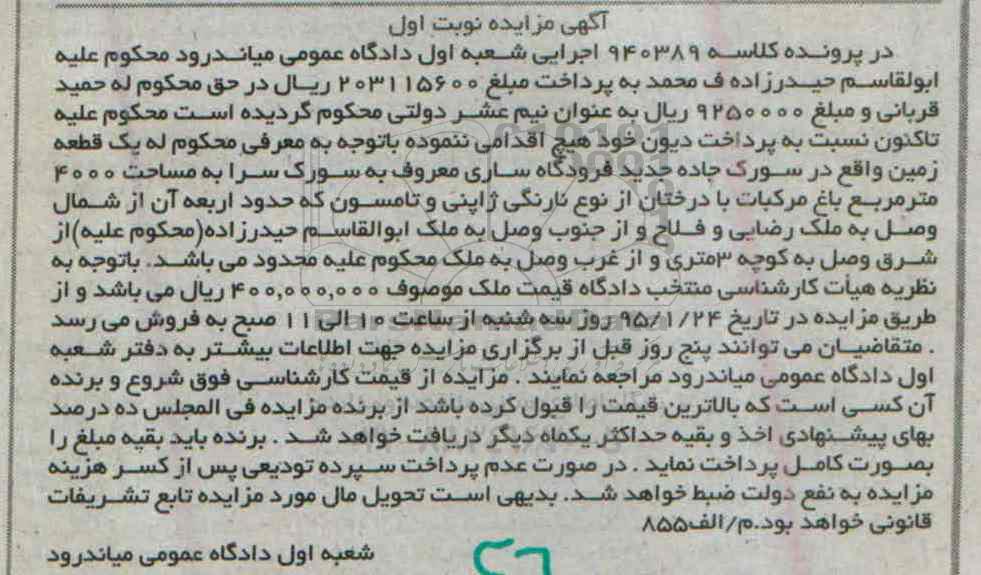 آگهی مزایده نوبت اول
در پرونده کلاسه ۹۴۰۳۸۹ اجرایی شعبه اول دادگاه عمومی میاندرود محکوم علیه
ابولقاسم حیدرزاده ف محمد به پرداخت مبلغ ۲۰۳۱۱۵۶۰۰ ریال در حق محکوم له حمید
قربانی و مبلغ ۹۲۵۰۰۰۰ ریال به عنوان نیم عشر دولتی محکوم گردیده است محکوم علیه
تاکنون نسبت به پرداخت دیون خود هیچ اقدامی ننموده باتوجه به معرفی محکوم له یک قطعه
زمین واقع در سورک جاده جدید فرودگاه ساری معروف به سورک سرا به مساحت ۴۰۰۰
مترمربع باغ مرکبات با درختان از نوع نارنگی ژاپنی و تامسون که حدود اربعه آن از شمال
وصل به ملک رضایی و فلاح و از جنوب وصل به ملک ابوالقاسم حیدرزاده(محکوم علیه)از
شرق وصل به کوچه ۳متری و از غرب وصل به ملک محکوم علیه محدود می باشد. باتوجه به
نظریه هیأت کارشناسی منتخب دادگاه قیمت ملک موصوف ۴۰۰,۰۰۰,۰۰۰ ریال می باشد و از
طریق مزایده در تاریخ ۹۵/۱/۲۴ روز سه شنبه از ساعت ۱۰ الی ۱۱ صبح به فروش می رسد
. متقاضیان می توانند پنج روز قبل از برگزاری مزایده جهت اطلاعات بیشتر به دفتر شعبه
اول دادگاه عمومی میاندرود مراجعه نمایند . مزایده از قیمت کارشناسی فوق شروع و برنده
آن کسی است که بالاترین قیمت را قبول کرده باشد از برنده مزایده فی المجلس ده درصد
بهای پیشنهادی اخذ و بقیه حداکثر یکماه دیگر دریافت خواهد شد . برنده باید بقیه مبلغ را
بصورت کامل پرداخت نماید . در صورت عدم پرداخت سپرده تودیعی پس از کسر هزینه
مزایده به نفع دولت ضبط خواهد شد. بدیهی است تحویل مال مورد مزایده تابع تشریفات
قانونی خواهد بود.م/الف۸۵۵
شعبه اول دادگاه عمومی میاندرود